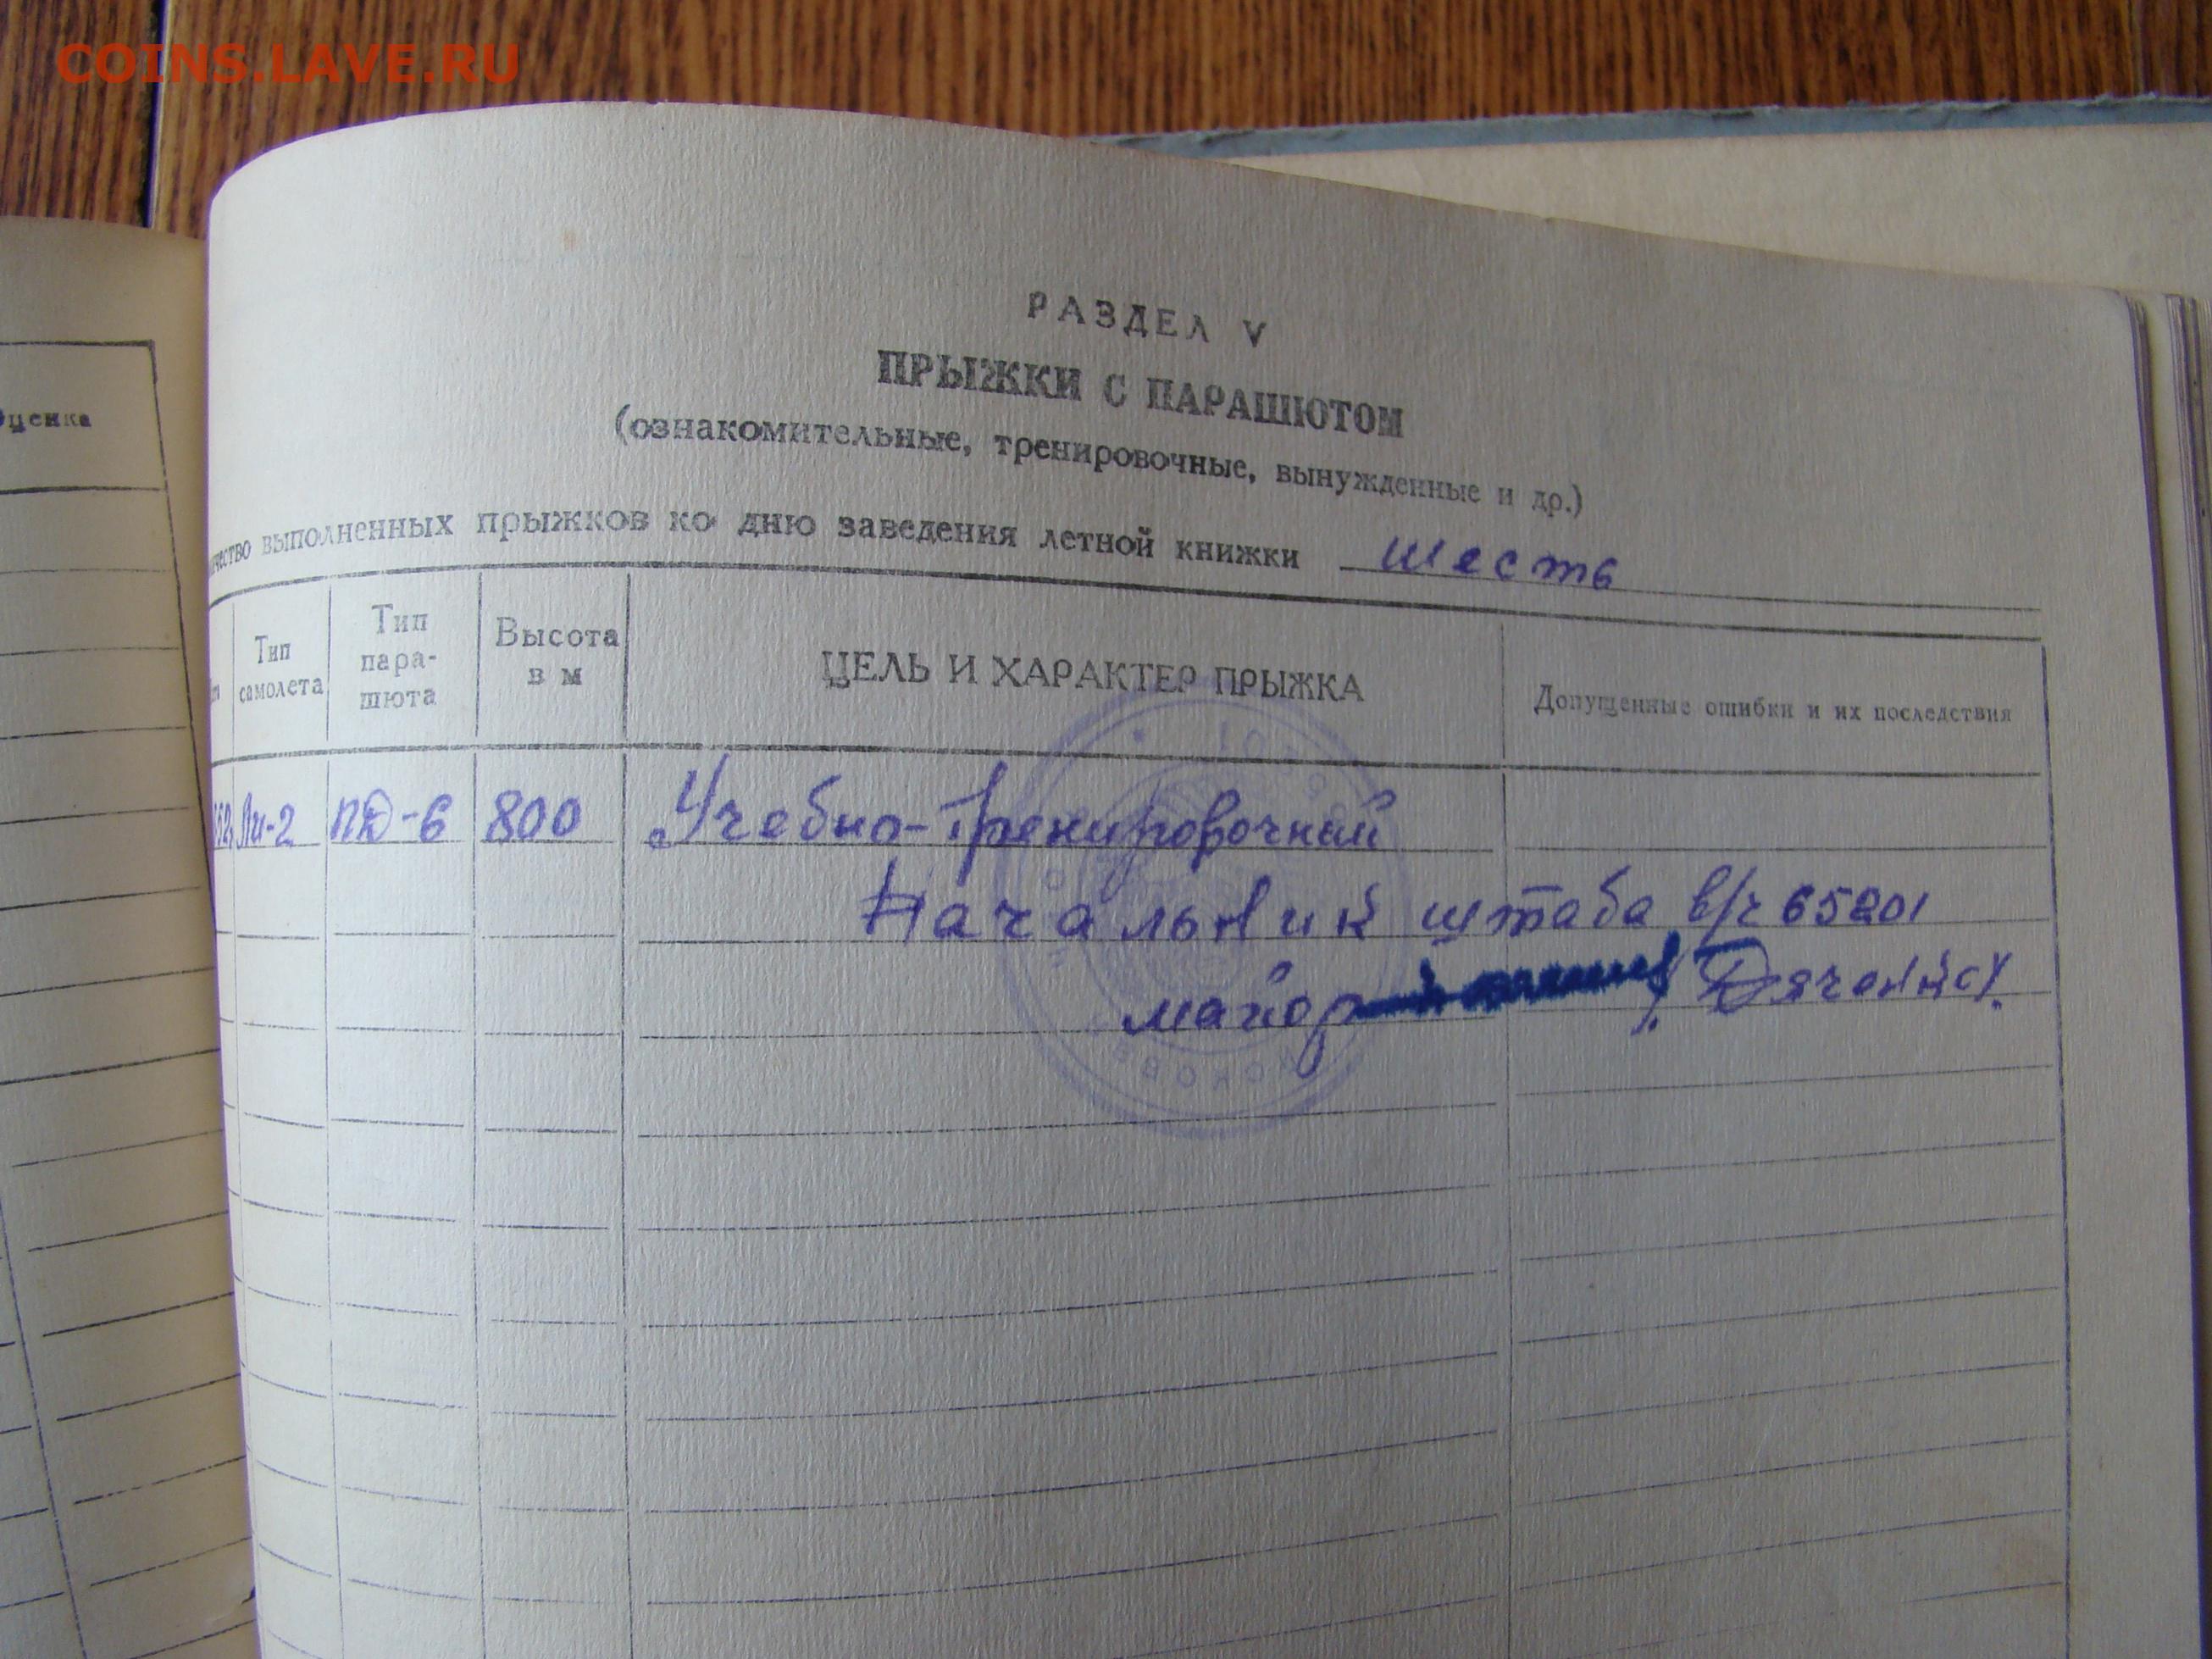 COINS.LAVE.RU
Оценка
РАЗДЕЛ V
ПРЫЖКИ С ПАРАШЮТОМ
(ознакомительные, тренировочные, вынужденные и др.)
выполненных прыжков ко дню заведения летной книжки шесть
Тип самолета
Тип пара-
шюта
Высота
в м
ЦЕЛЬ И ХАРАКТЕР ПРЫЖКА
Допущенные ошибки и их последствия
52, Ли-2 ПД-6 800 Учебно-Тренировочный
Начальник штаба в/ч 65201
майор /Дяченко/.